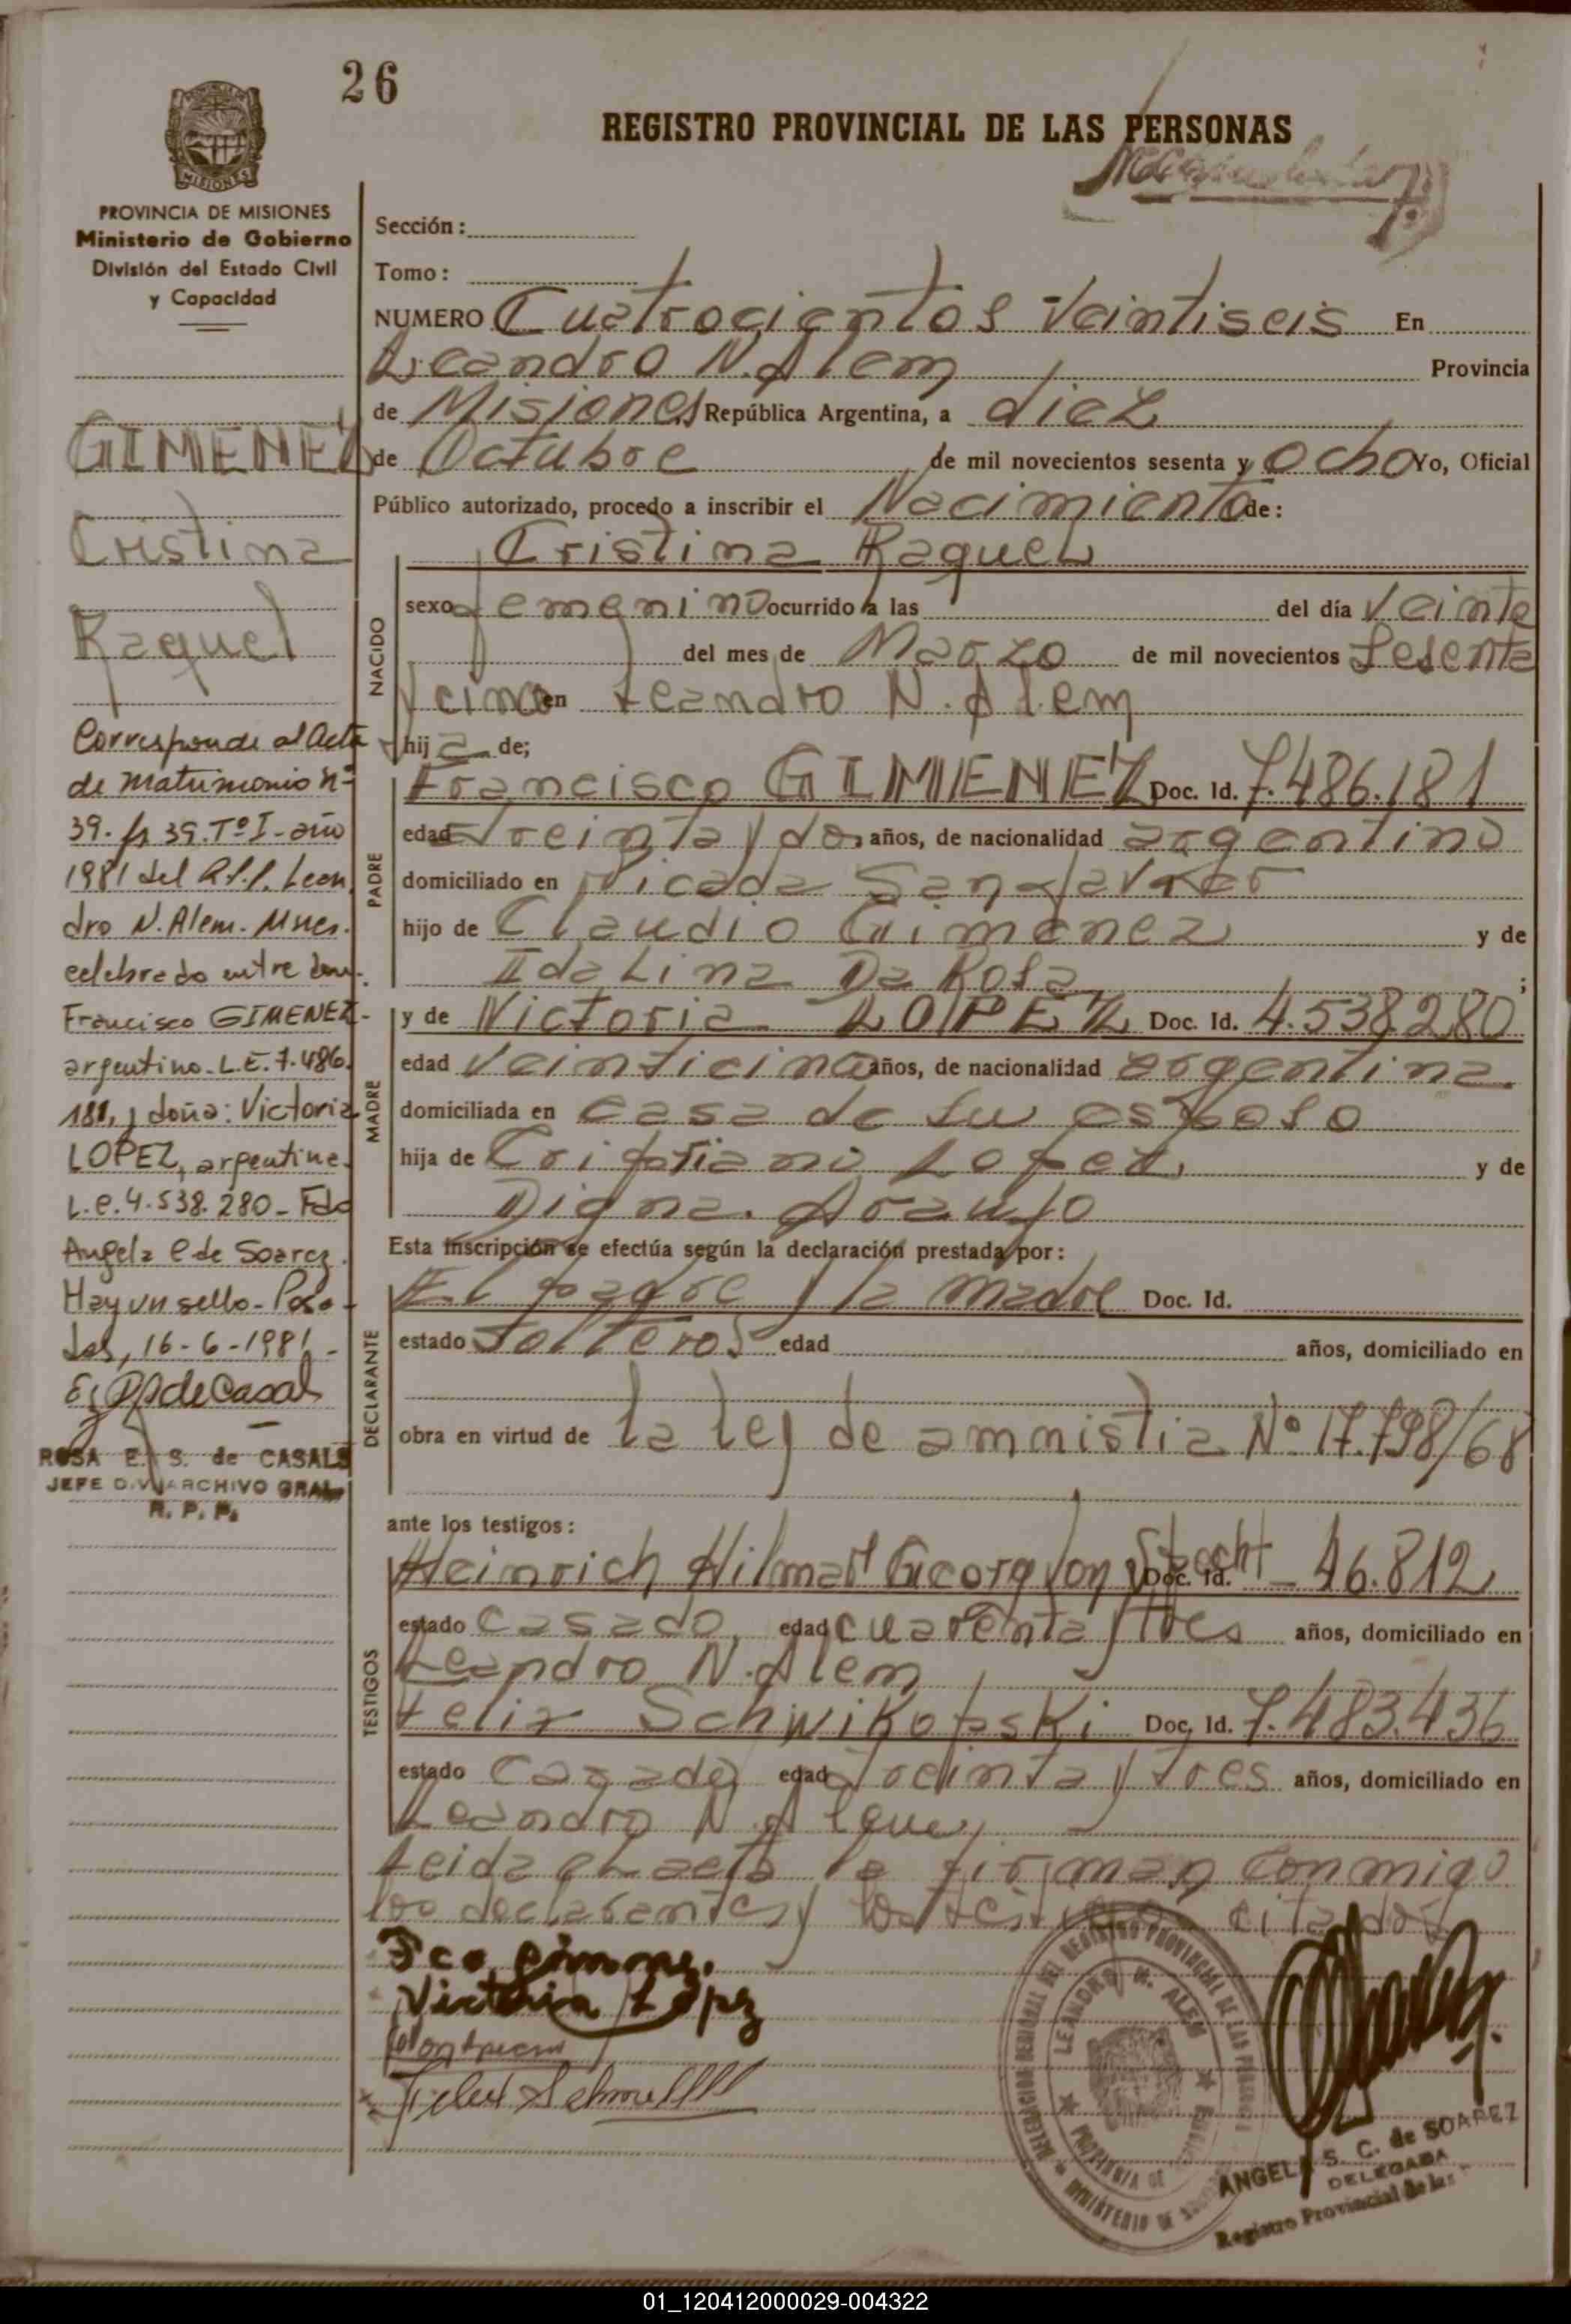 26
REGISTRO PROVINCIAL DE LAS PERSONAS
MISIONES
PROVINCIA DE MISIONES
Ministerio de Gobierno
División del Estado Civil
y Capacidad
GIMENEZ
Cristina
Raquel
Corresponde al Acta
de Matrimonio nº
39. fs 39. Tº I - año
1981 del R.P.P. Lean
dro N. Alem. Mnes.
celebrado entre don
Francisco GIMENEZ-
argentino - L.E. 7.486.
181, y doña: Victoria
LOPEZ, argentina
L.C. 4.538.280 - Fdo
Angela C de Soarez.
Hay un sello - Posa-
das, 16-6-1981 -
ROSA E. S. de CASALS
JEFE DIV. ARCHIVO GRAL
R. P. P.
Sección:
Tomo:
NUMERO Cuatrocientos Veintiseis En
Leandro N. Alem Provincia
de Misiones República Argentina, a diez
de Octubre de mil novecientos sesenta y ocho Yo, Oficial
Público autorizado, procedo a inscribir el Nacimiento de:
NACIDO
Cristina Raquel
sexo femenino ocurrido a las del día Veinte
del mes de Marzo de mil novecientos Sesenta
y cinco en Leandro N. Alem
hij a de;
PADRE
Francisco GIMENEZ Doc. Id. 7.486.181
edad treinta y dos años, de nacionalidad argentino
domiciliado en Picada San Javier
hijo de Claudio Gimenez y de
Idalina Da Rosa ;
MADRE
y de Victoria LOPEZ Doc. Id. 4.538.280
edad Veinticinco años, de nacionalidad argentina
domiciliada en casa de su esposo
hija de Cristiano Lopez y de
Digna Araujo
Esta inscripción se efectúa según la declaración prestada por:
DECLARANTE
El padre y la madre Doc. Id.
estado Solteros edad años, domiciliado en
obra en virtud de la ley de amnistia Nº 17.798/68
ante los testigos:
TESTIGOS
Heinrich Hilmar Georg von Doc. Id. 46.812
estado casado, edad cuarenta y tres años, domiciliado en
Leandro N. Alem
Felix Schwikofski Doc. Id. 7.483.436
estado casado, edad treinta y tres años, domiciliado en
Leandro N. Alem,
Leida el acta la firman conmigo
los declarantes y los testigos citados
Fco Gimenez.
Victoria Lopez
LEANDRO N. ALEM
PROVINCIA DE
ANGELA S. C. de SOAREZ
DELEGADA
Registro Provincial de las
01_120412000029-004322